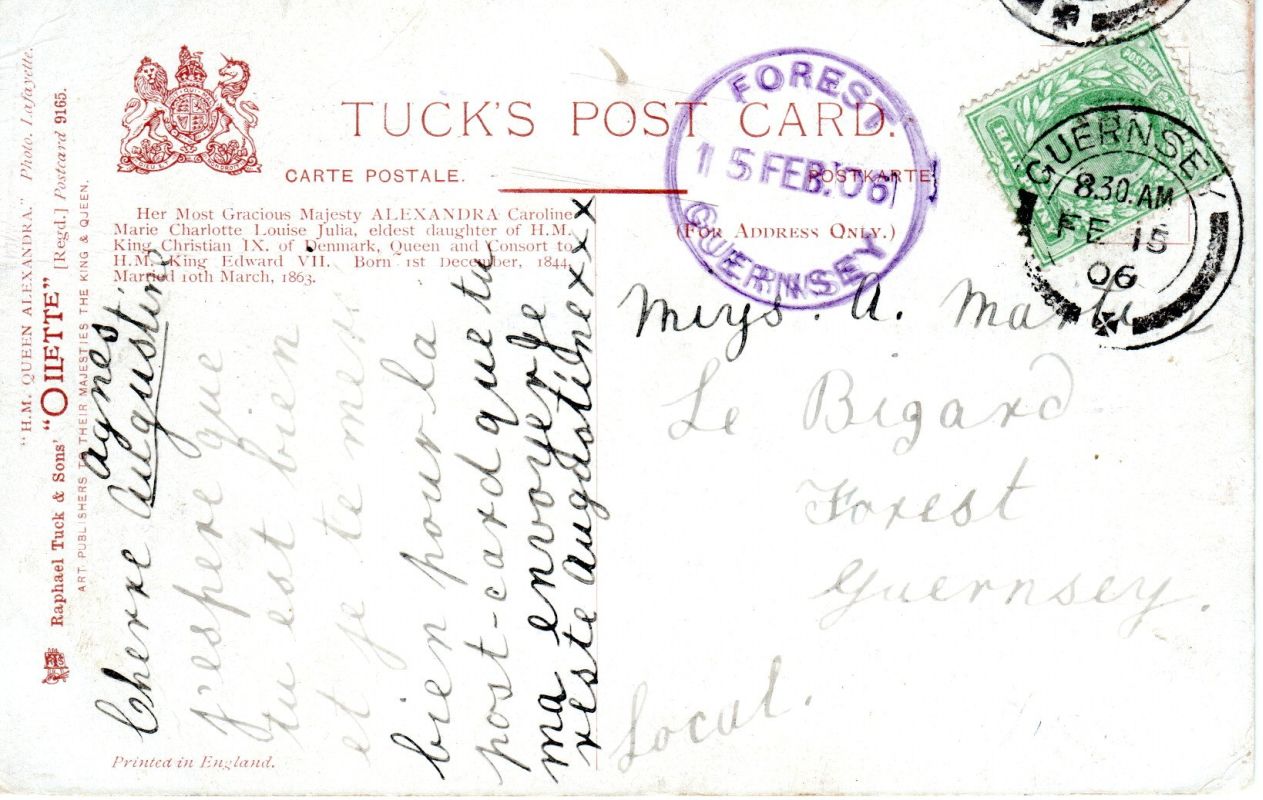 TUCK'S POST CARD.
CARTE POSTALE.
POSTKARTE
(FOR ADDRESS ONLY.)
Her Most Gracious Majesty ALEXANDRA Caroline
Marie Charlotte Louise Julia, eldest daughter of H.M.
King Christian IX. of Denmark, Queen and Consort to
H.M. King Edward VII. Born 1st December, 1844,
Married 10th March, 1863.
"H.M. QUEEN ALEXANDRA." Photo. Lafayette.
Raphael Tuck & Sons' "OILETTE" [Regd.] Postcard 9165.
ART PUBLISHERS TO THEIR MAJESTIES THE KING & QUEEN.
Printed in England.
FOREST
15 FEB. 06
GUERNSEY
POSTAGE
GUERNSEY
8.30. AM
FE 15
06
agnes
Cherre Augustine
j'espere que
tu est bien
et je te
bien pour la
post-card que tu
ma envoyer je
reste Augustine x x x x
A.
Le Bigard
Forest
Guernsey.
Local.